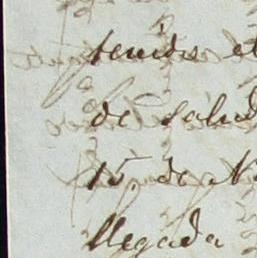 tenido el
de salud
15. de N
llegada